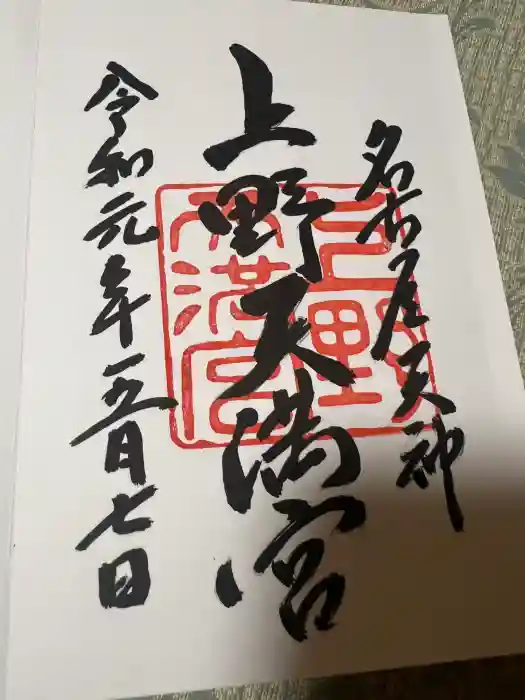 名古屋天神
上野天満宮
上野天満宮
令和元年五月七日